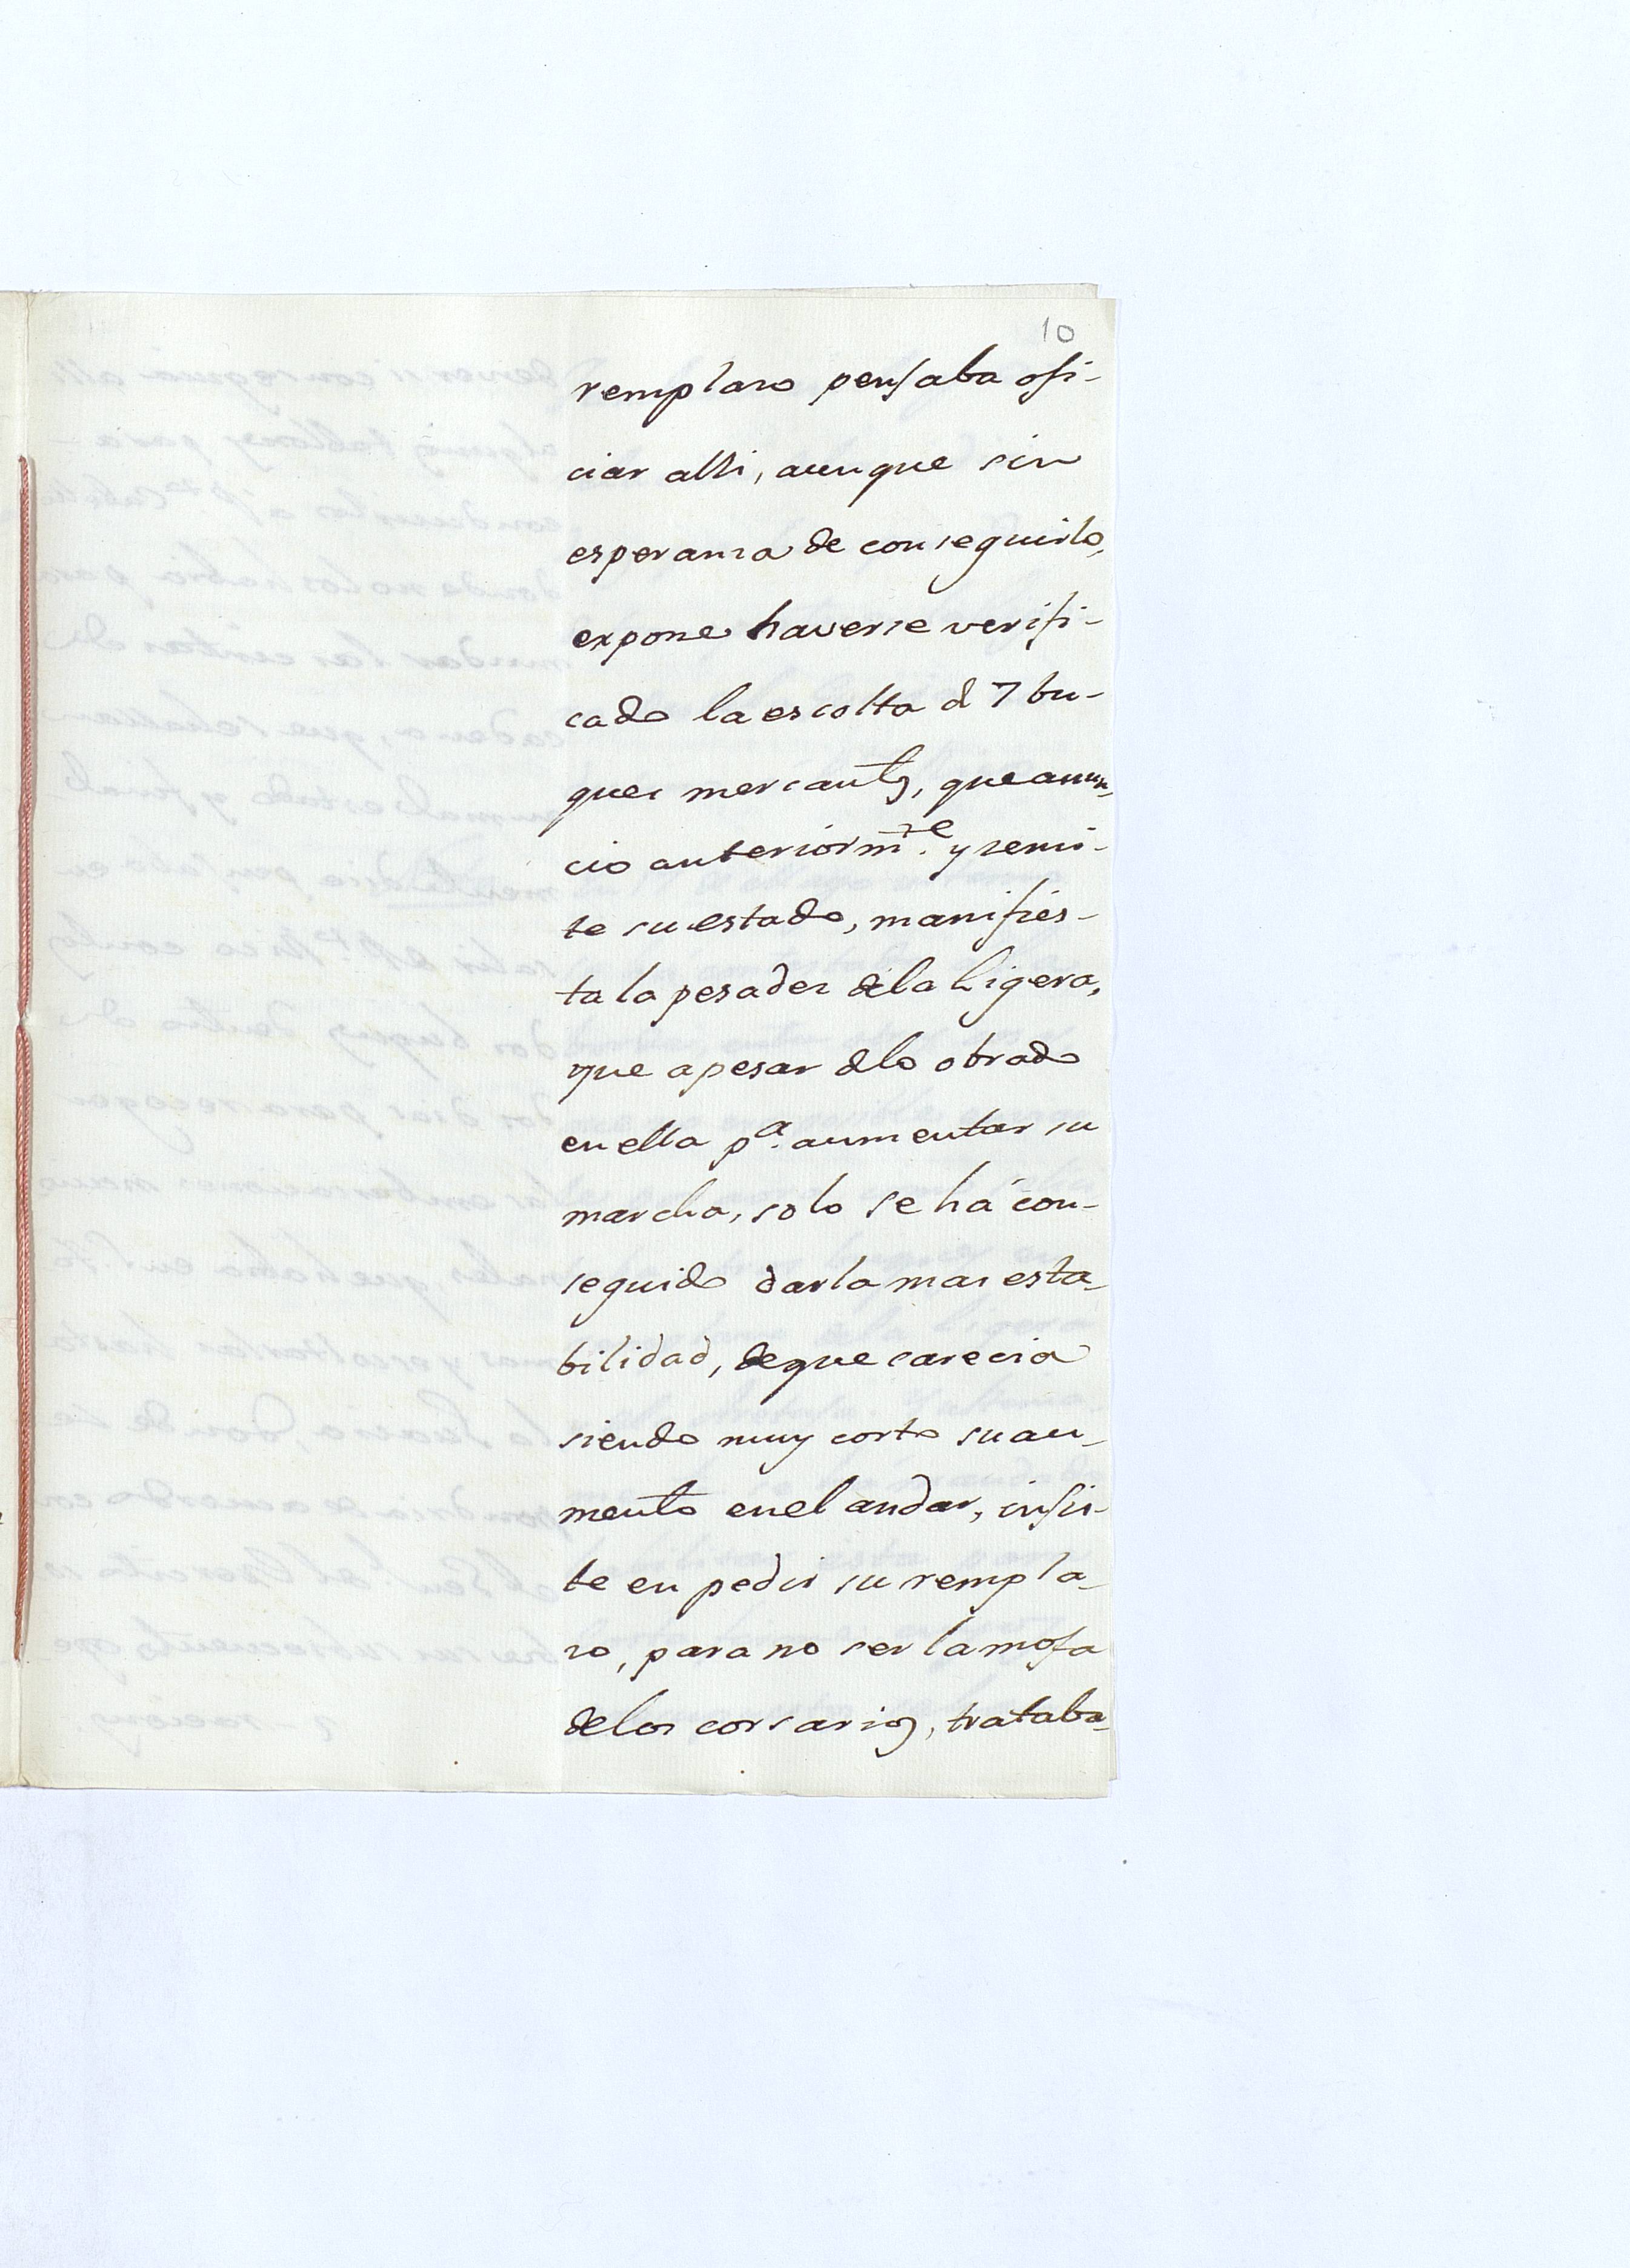 10
remplazo pensaba ofi-
ciar alli, aunque sin
esperanza de conseguirlo,
expone haverse verifi-
cado la escolta d 7 bu-
ques mercantes, que anun-
cio anteriormte. y remi-
te su estado, manifies-
ta la pesadez dela Ligera,
que apesar dlo obrado
en ella pa. aumentar su
marcha, solo se há con-
seguido darla mas esta-
bilidad, deque carecia
siendo muy corto su au-
mento en el andar, insis-
te en pedir su rempla-
zo, para no ser la mofa
delos corsarios, trataba-